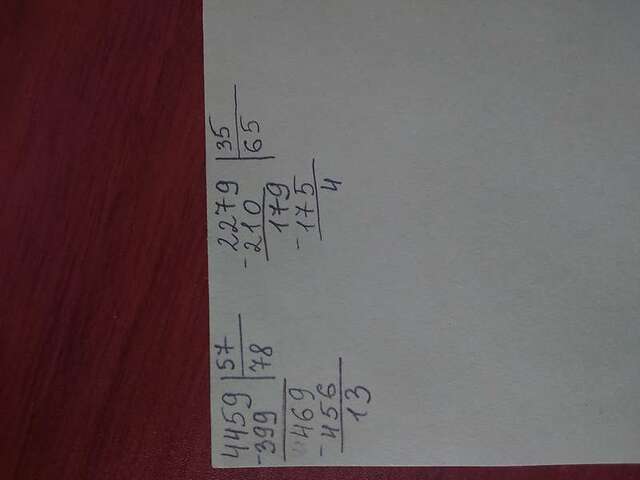 4459 57
-399 78
469
-456
13
2279 35
-210 65
179
-175
4